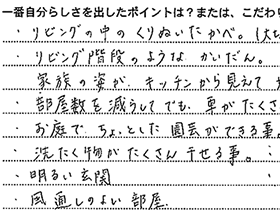 一番自分らしさを出したポイントは？または、こだわり
・リビングの中のくりぬいたかべ。(大
・リビング階段のような かいだん。
・家族の姿が、キッチンから見えて
・部屋数を減らしてでも、車がたくさ
・お庭で ちょっとした園芸ができる事。
・洗たく物がたくさん干せる事。
・明るい玄関
・風通しのよい部屋